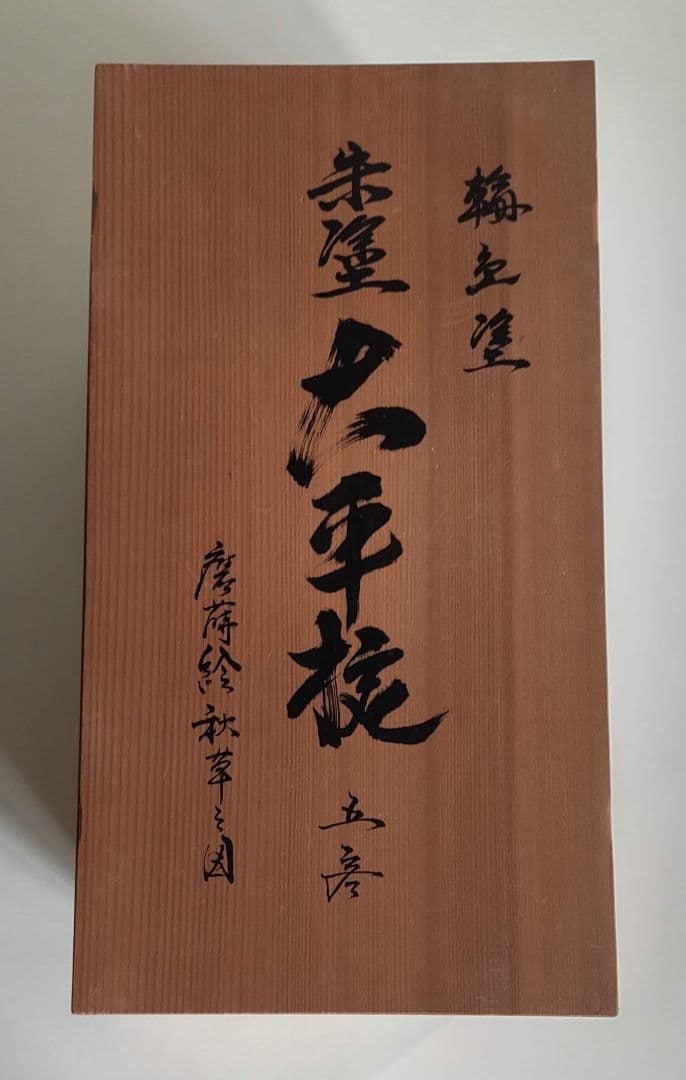 輪島塗
朱塗 大平椀 五客
磨蒔絵秋草之図